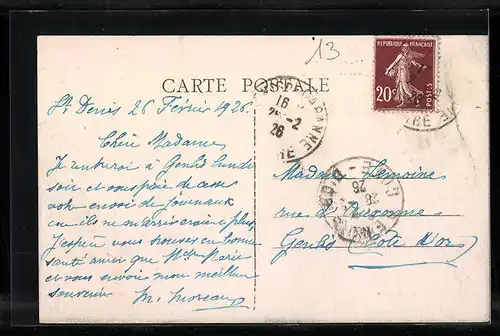 13
CARTE POSTALE
REPUBLIQUE FRANÇAISE
20c
POSTES
16
26
St Denis 26 Février 1926.
Chère Madame
Je rentrerai à Genlis lundi
soir et vous prie de cesser
votre envoi de journaux
car ils ne m'arriveraient plus
J'espère vous trouver en bonne
santé ainsi que Mlle Marie
et vous envoie mon meilleur
souvenir
M. Moreau
Madame Lemoine
rue d'Auxonne
Genlis (Côte d'or)